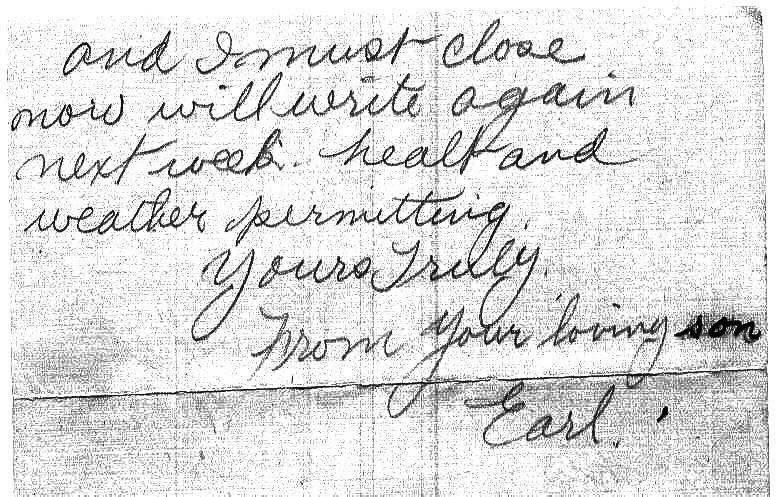 and I must close
now will write again
next week. healt and
weather permitting.
Yours Truly.
From Your loving son
Earl.